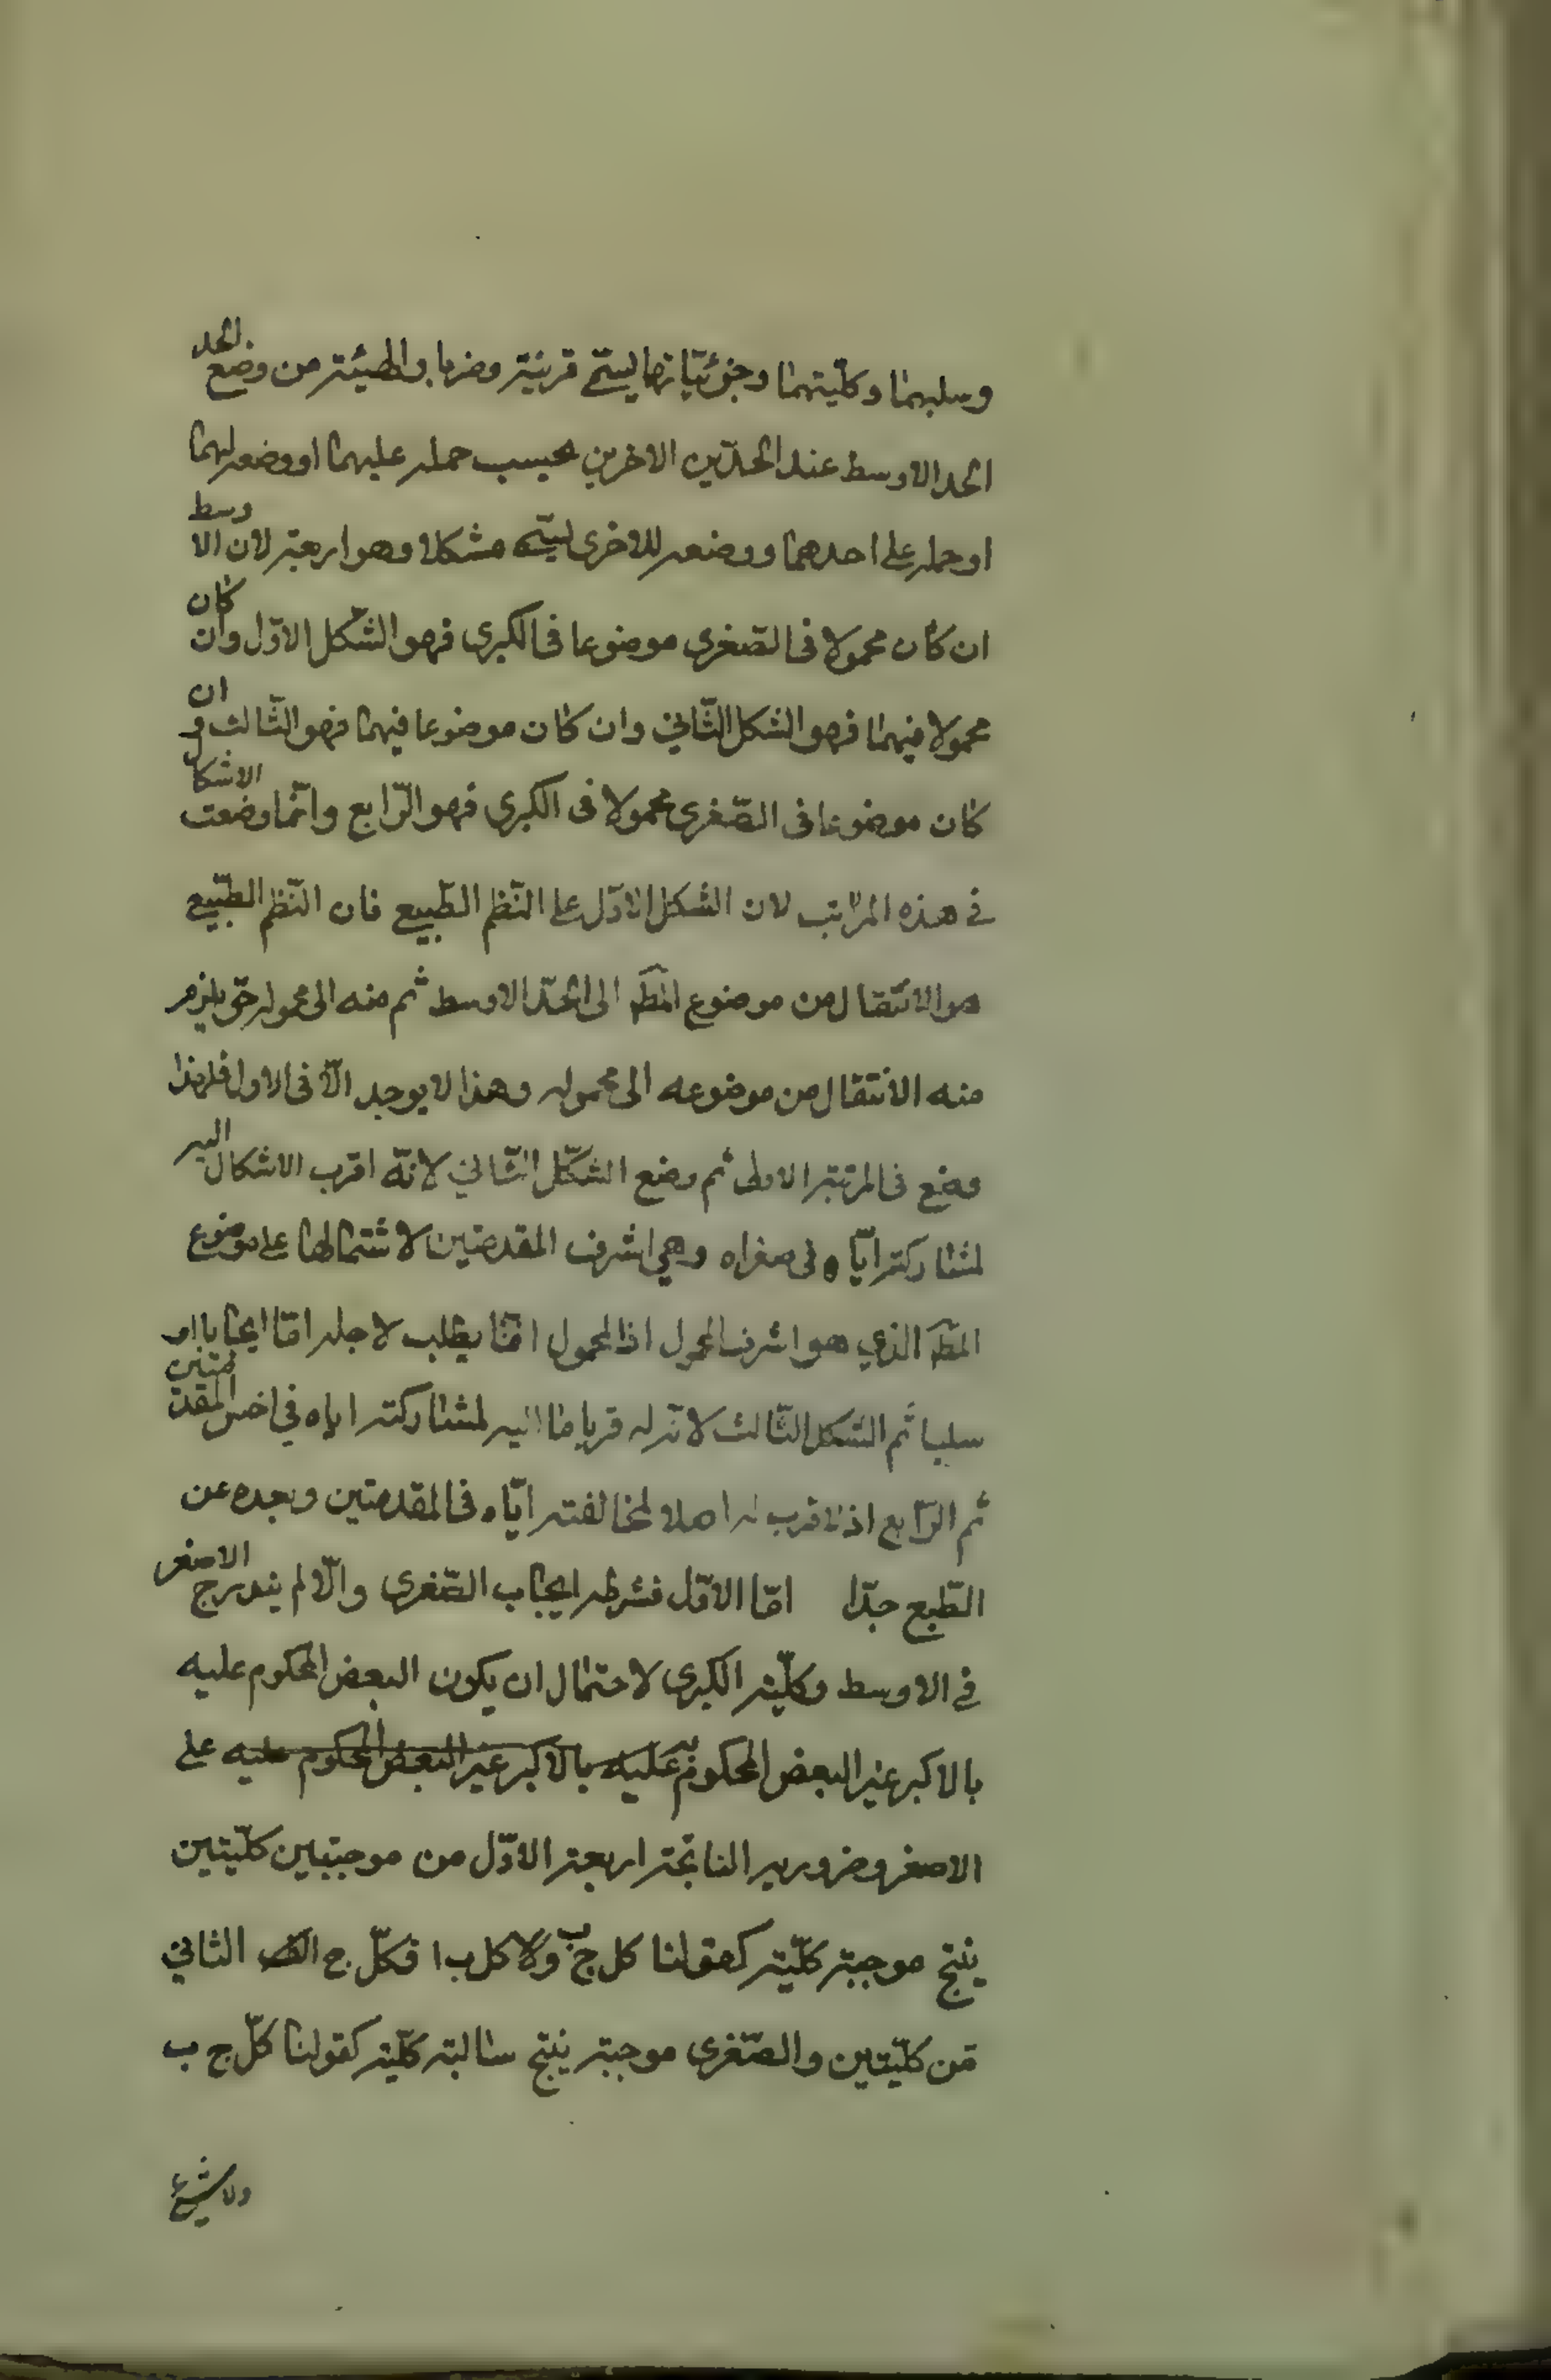 وسلبهما وكلّيتهما وجزئيّاتهما يسمّى قرينة وضربا والهيئة من وضع الحد
الحد الاوسط عند الحدّين الاخرين بحسب حمله عليهما او وضعه لهما
او حمله على احدهما ووضعه للاخرى يسمّى شكلا وهو اربعة لان الاوسط
ان كان محمولا فى الصّغرى موضوعا فى الكبرى فهو الشّكل الاوّل وان كان
محمولا فيهما فهو الشكل الثّاني وان كان موضوعا فيهما فهو الثّالث وان
كان موضوعا فى الصّغرى محمولا فى الكبرى فهو الرّابع وانّما وضعت الاشكال
في هذه المراتب لان الشكل الاوّل على النّظم الطّبيعي فان النّظم الطّبيعي
هو الانتقال من موضوع المط الى الحدّ الاوسط ثم منه الى محموله حتى يلزم
منه الانتقال من موضوعه الى محموله وهذا لا يوجد الّا فى الاول فلهذا
وضع فى المرتبة الاولى ثم وضع الشكّل الثّاني لانّه اقرب الاشكال اليه
لمشاركته ايّاه فى صغراه وهي اشرف المقدمتين لاشتمالها على موضوع
المط الذي هو اشرف المحمول اذ المحمول انّما يطلب لاجله امّا ايجابا او
سلبا ثم الشكل الثّالث لانّ له قربا ما اليه لمشاركته اياه في اخس المقدمتين
ثم الرّابع اذ لا قرب له اصلا لمخالفته ايّاه فى المقدمتين وبعده عن
الطّبع جدّا امّا الاوّل فشرطه ايجاب الصّغرى والّا لم يندرج الاصغر
في الاوسط وكلّية الكبرى لاحتمال ان يكون البعض المحكوم عليه
بالاكبر غير البعض المحكوم به عليه بالاكبر غير البعض المحكوم عليه على
الاصغر وضروبه الناتجة اربعة الاوّل من موجبتين كلّيتين
ينتج موجبة كلّية كقولنا كل ج ب وكل ب ا فكلّ ج ا الثاني
من كلّيتين والصّغرى موجبة ينتج سالبة كلّية كقولنا كلّ ج ب
ولا شيء